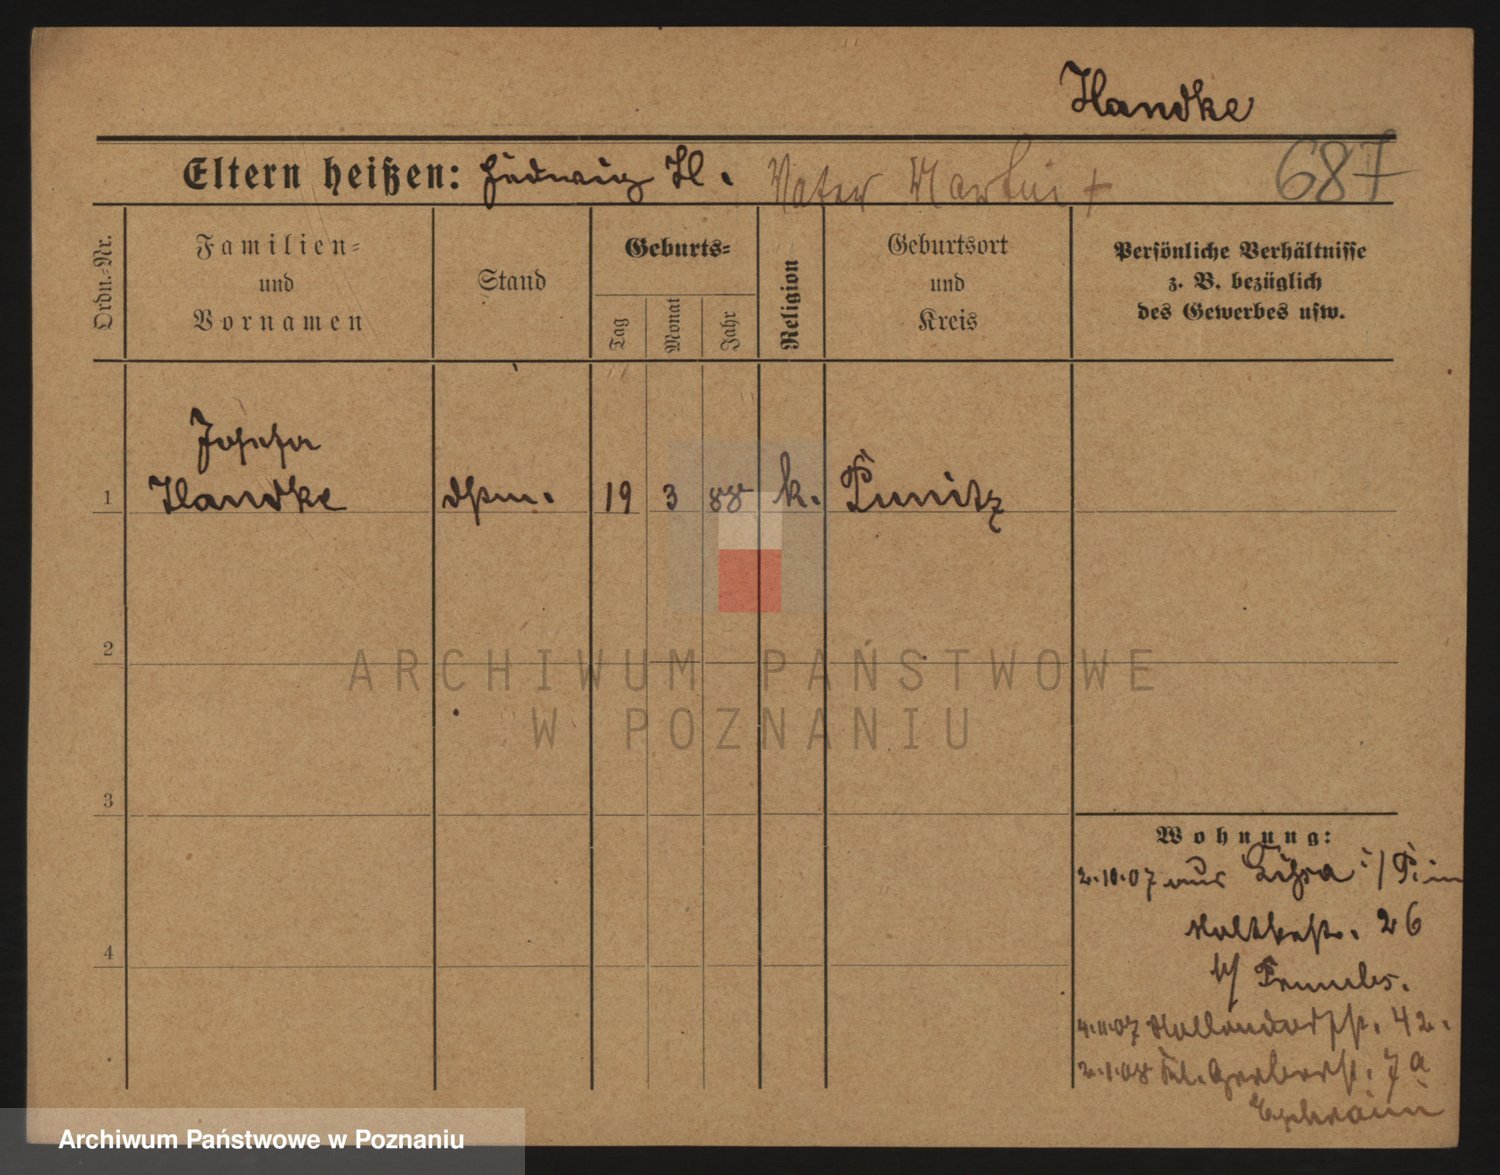 Handke
Eltern heißen: Hedwig H. Vater Martin + 687
Ordn.-Nr.
Familien-
und
Vornamen
Stand
Geburts-
Tag
Monat
Jahr
Religion
Geburtsort
und
Kreis
Persönliche Verhältnisse
z. B. bezüglich
des Gewerbes usw.
Josefa
1 Handke 19 3 88 k. Punitz
2
ARCHIWUM PAŃSTWOWE
W POZNANIU
3
Wohnung:
2.10.07 aus i/P. in
Moltkestr. 26
b/
4
4.11.07 42.
2.1.08 Kl. Gerberst. 7a
Ephraim
Archiwum Państwowe w Poznaniu